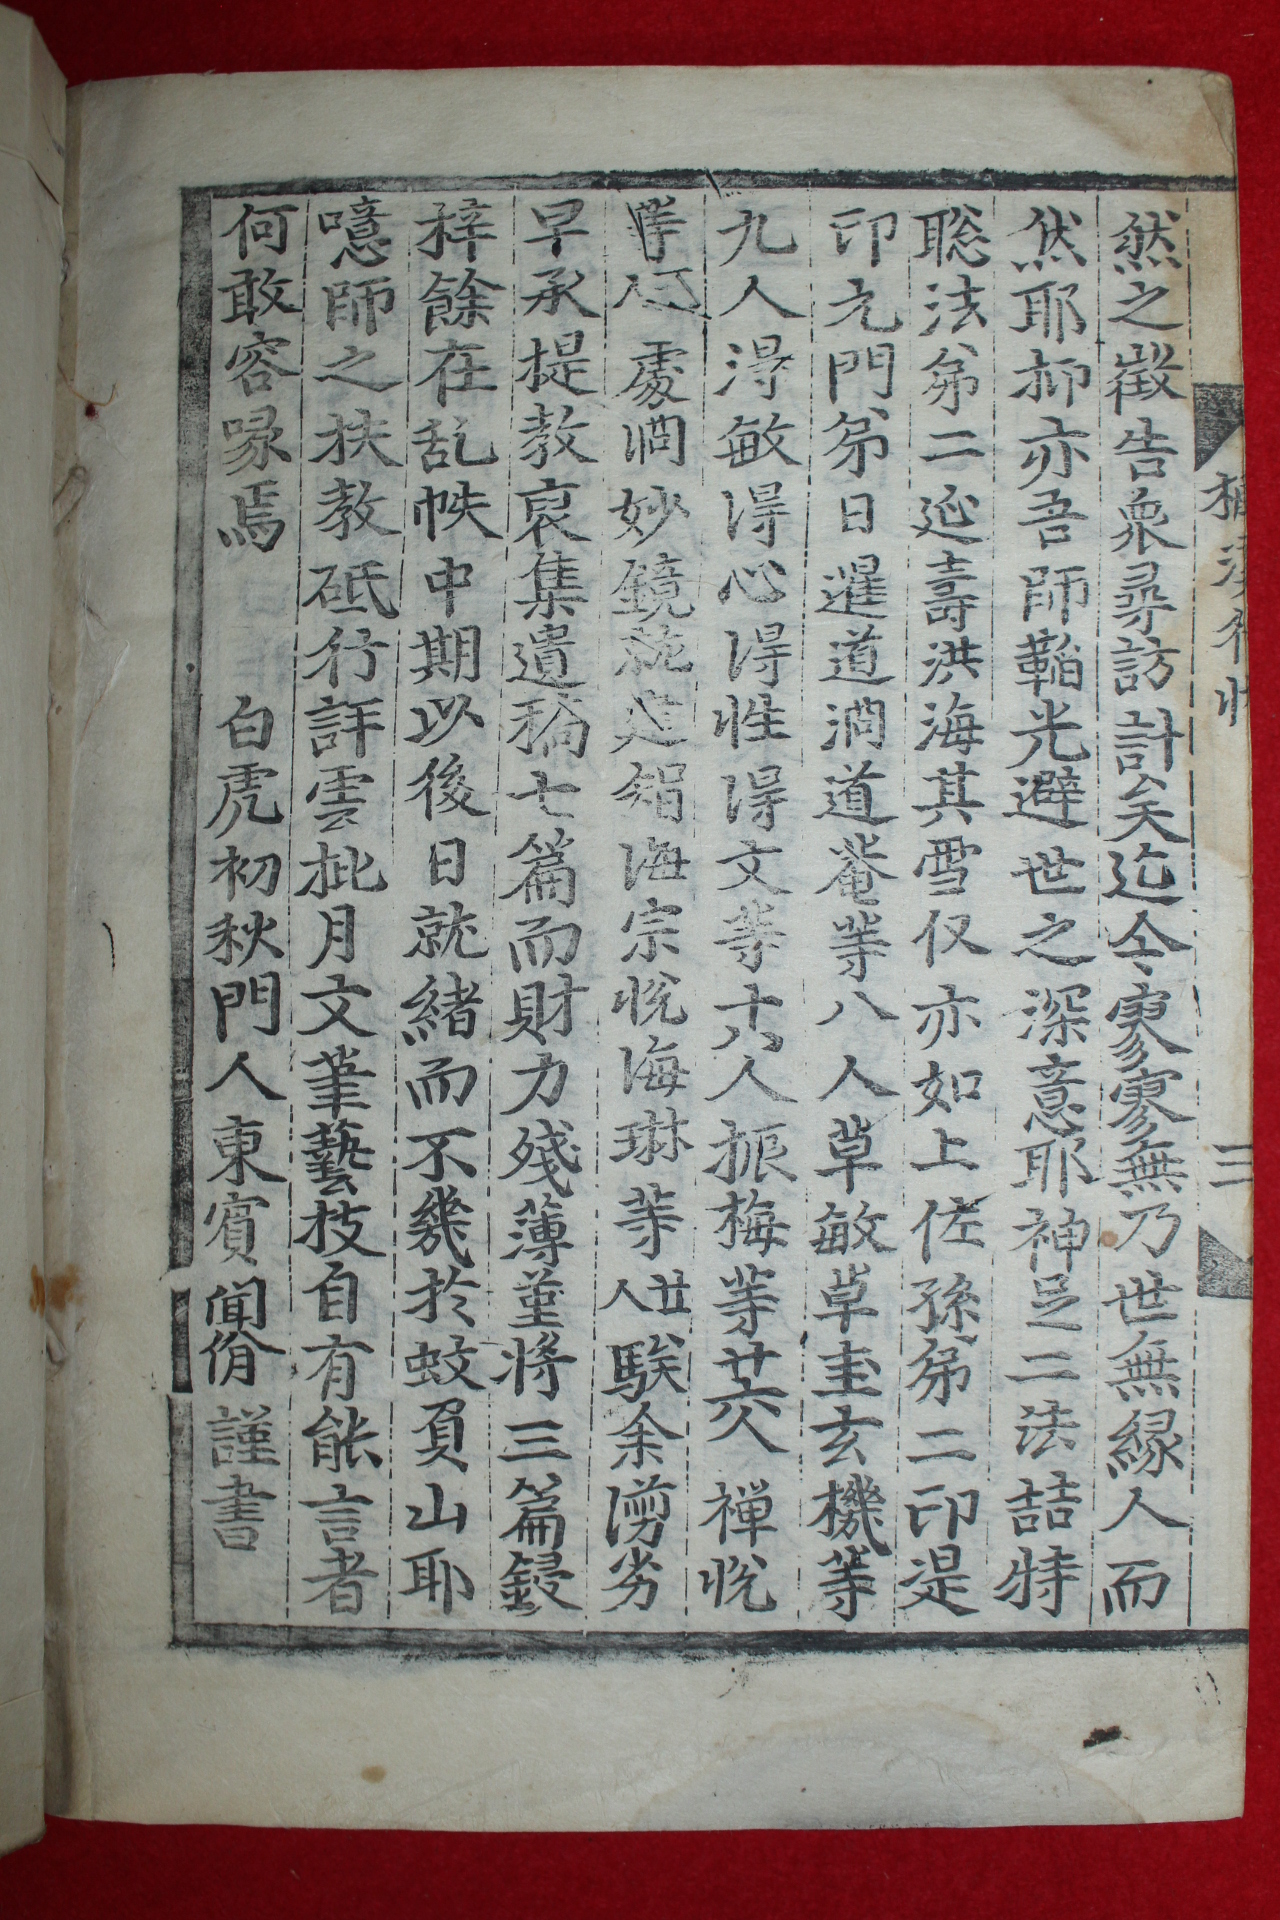 然之徵告衆尋訪計筭迄今寥寥無乃世無緣人而
然耶抑亦吾師韜光避世之深意耶神足二法喆特
聡法弟二延壽洪海其雪仅亦如上佐孫弟二印湜
印元門弟日暹道澗道菴等八人草敏草圭玄機等
九人淂敏淂心淂性淂文等十八人振梅等廿六人禪悅
等 處澗妙鏡就 海宗悅海琳等廿人騃余湔劣
早承提教裒集遺稿七篇而財力殘薄堇將三篇鋟
梓餘在乱帙中期以後日就緖而不幾於蚊負山耶
噫師之扶教砥行評雲批月文筆藝技自有能言者
何敢容喙焉 白虎初秋門人東賓 謹書
三